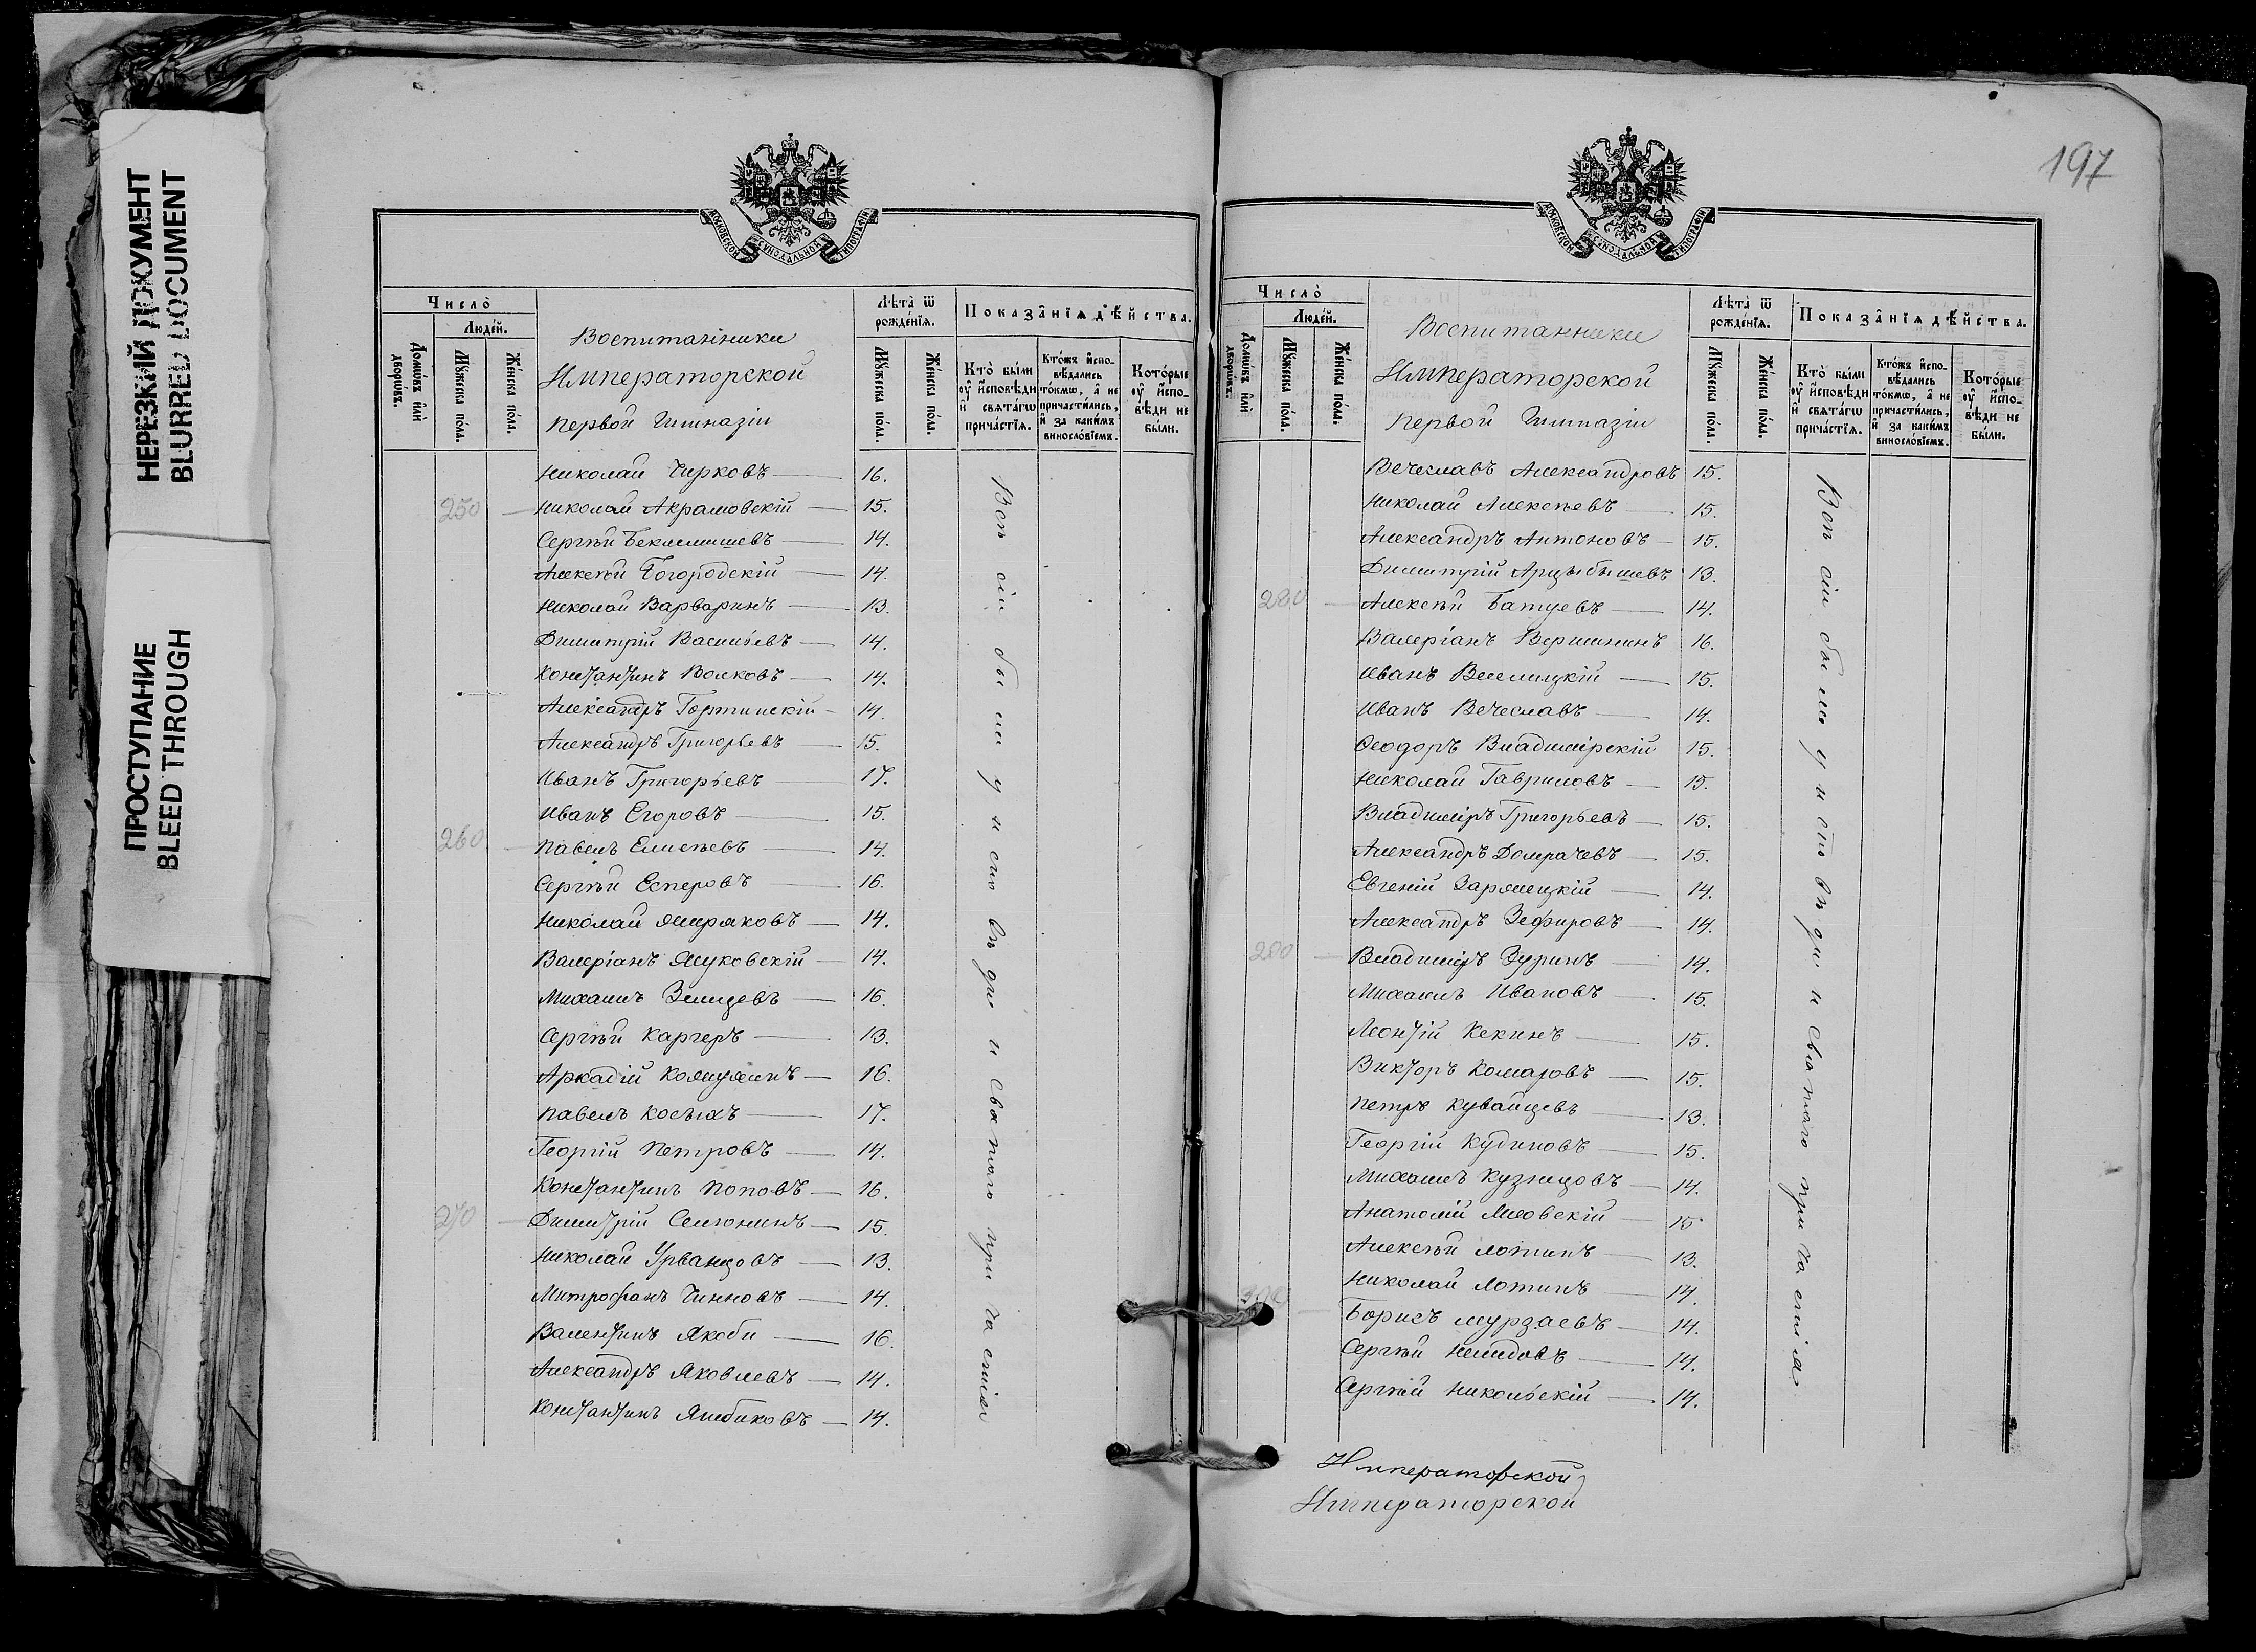 НЕРЕЗКИЙ ДОКУМЕНТ
BLURRED DOCUMENT
ПРОСТУПАНИЕ
BLEED THROUGH
МОСКОВСКОЙ СѴНОДАЛЬНОЙ ТИПОГРАФІИ
Число̀
Люде́й.
Домѡ́въ и҆лѝ дворѡ́въ.
Мꙋ́жеска по́ла.
Же́нска по́ла.
Воспитанники
Императорской
Первой Гимназіи
Лѣ́та ѿ рожде́нїѧ.
Мꙋ́жеска по́ла.
Же́нска по́ла.
Показа̑нїѧ дѣ́йства.
Кто̀ бы́ли оу҆ и҆сповѣ́ди и҆ свѧта́гѡ прича́стїѧ.
Кто́жъ и҆сповѣ́дались то́кмѡ, а҆ не причасти́лись, и҆ за каки́мъ виносло́вїемъ.
Кото́рые оу҆ и҆сповѣ́ди не бы́ли.
Николай Чирковъ — 16.
250 — Николай Акрамовскій — 15.
Сергѣй Беклемишевъ — 14.
Алексѣй Богородскій — 14.
Николай Варваринъ — 13.
Димитрій Васильевъ — 14.
Константинъ Волковъ — 14.
Александръ Гортинскій — 14.
Александръ Григорьевъ — 15.
Иванъ Григорьевъ — 17.
Иванъ Егоровъ — 15.
260 — Павелъ Елисѣевъ — 14.
Сергѣй Есперовъ — 16.
Николай Жмуряковъ — 14.
Валеріанъ Жуковскій — 14.
Михаилъ Зимцевъ — 16.
Сергѣй Каргеръ — 13.
Аркадій — 16.
Павелъ Косыхъ — 17.
Георгій Петровъ — 14.
Константинъ Поповъ — 16.
270 — Димитрій Семонинъ — 15.
Николай Урванцовъ — 13.
Митрофанъ Чинновъ — 14.
Валентинъ Якоби — 16.
Александръ Яковлевъ — 14.
Константинъ Ямбиковъ — 14.
Всѣ сіи были у исповѣди и Святаго причастія
197
МОСКОВСКОЙ СѴНОДАЛЬНОЙ ТИПОГРАФІИ
Число̀
Люде́й.
Домѡ́въ и҆лѝ дворѡ́въ.
Мꙋ́жеска по́ла.
Же́нска по́ла.
Воспитанники
Императорской
Первой Гимназіи
Лѣ́та ѿ рожде́нїѧ.
Мꙋ́жеска по́ла.
Же́нска по́ла.
Показа̑нїѧ дѣ́йства.
Кто̀ бы́ли оу҆ и҆сповѣ́ди и҆ свѧта́гѡ прича́стїѧ.
Кто́жъ и҆сповѣ́дались то́кмѡ, а҆ не причасти́лись, и҆ за каки́мъ виносло́вїемъ.
Кото́рые оу҆ и҆сповѣ́ди не бы́ли.
Вечеславъ Александровъ 15.
Николай Алексѣевъ — 15.
Александръ Антоновъ — 15.
Димитрій Арцыбышевъ 13.
280 — Алексѣй Батуевъ — 14.
Валеріанъ Вершининъ 16.
Иванъ Веселицкій — 15.
Иванъ Вечеславъ — 14.
Ѳеодоръ Владимірскій 15.
Николай Гавриловъ — 15.
Владиміръ Григорьевъ — 15.
Александръ Домрачевъ — 15.
Евгеній Заржецкій — 14.
Александръ Зефировъ — 14.
290 — Владиміръ Зуринъ — 14.
Михаилъ Ивановъ — 15.
Леонтій Кекинъ — 15.
Викторъ Комаровъ — 15.
Петръ Кувайцевъ — 13.
Георгій Кудиновъ — 15.
Михаилъ Кузнецовъ — 14.
Анатолій — 15
Алексѣй Лотинъ — 13.
Николай Лотинъ — 14.
300 — Борисъ Мурзаевъ — 14.
Сергѣй Нелидовъ — 14.
Сергѣй Никольскій — 14.
Всѣ сіи были у исповѣди и Святаго причастія.
Императорской
Императорской